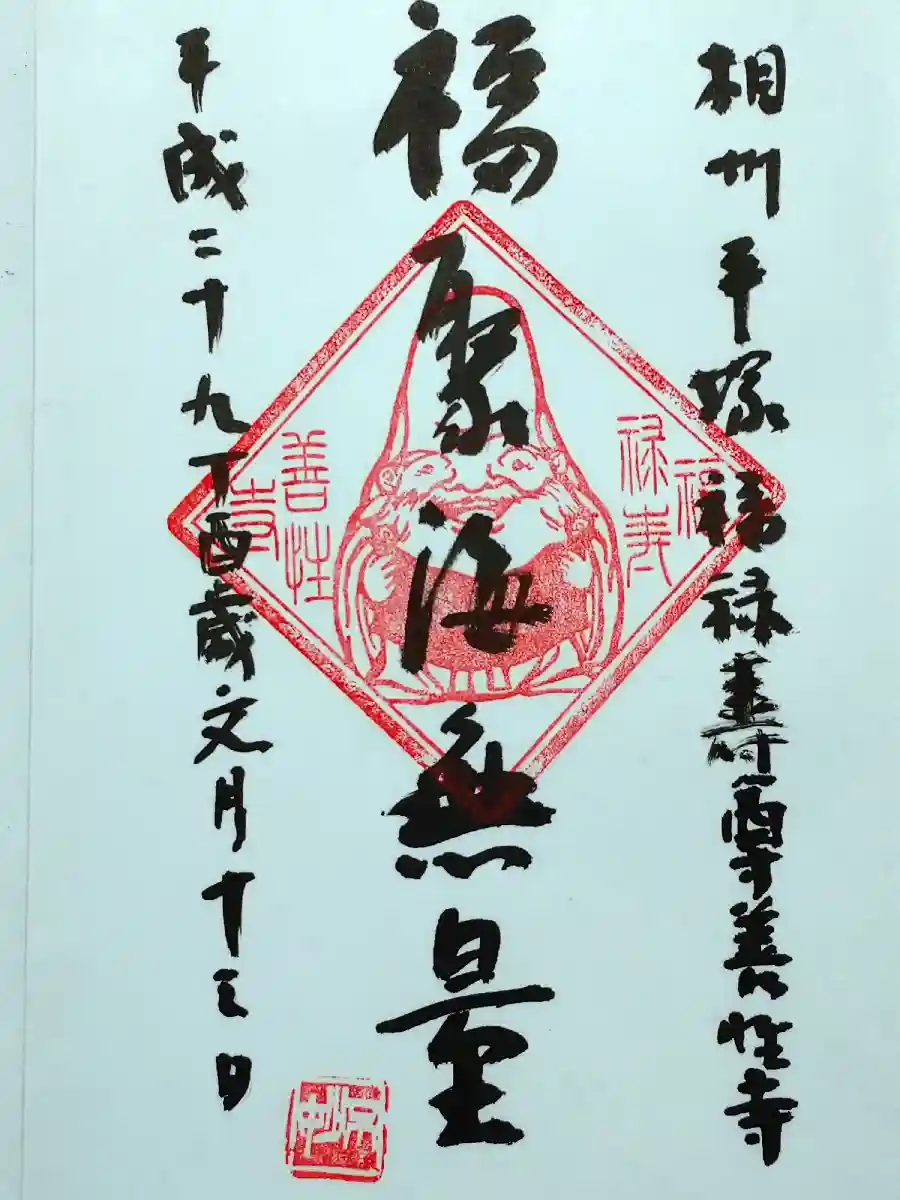 相州平塚福禄壽尊善性寺
福聚海無量
平成二十九丁酉歳文月十三日
福
禄寿
善性
寺